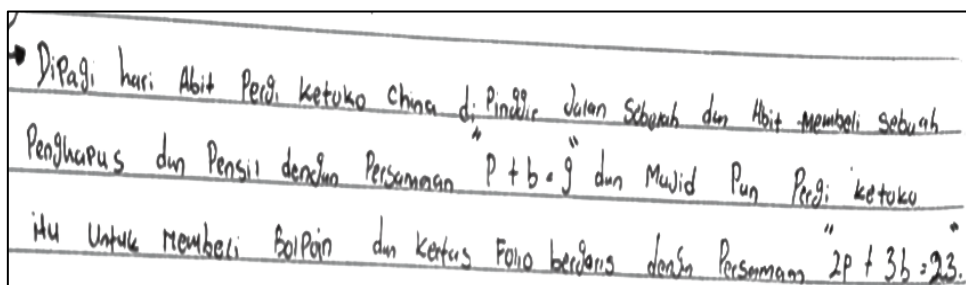 Dipagi hari Abit Pergi ketoko China di Pinggir Jalan Seberah dan Abit Membeli sebuah
Penghapus dan Pensil dengan Persamaan "P + b = 9" dan Majid Pun Pergi ketoko
itu Untuk Membeli Bolpoin dan Kertas Folio bergaris dengan Persamaan "2P + 3b = 23."